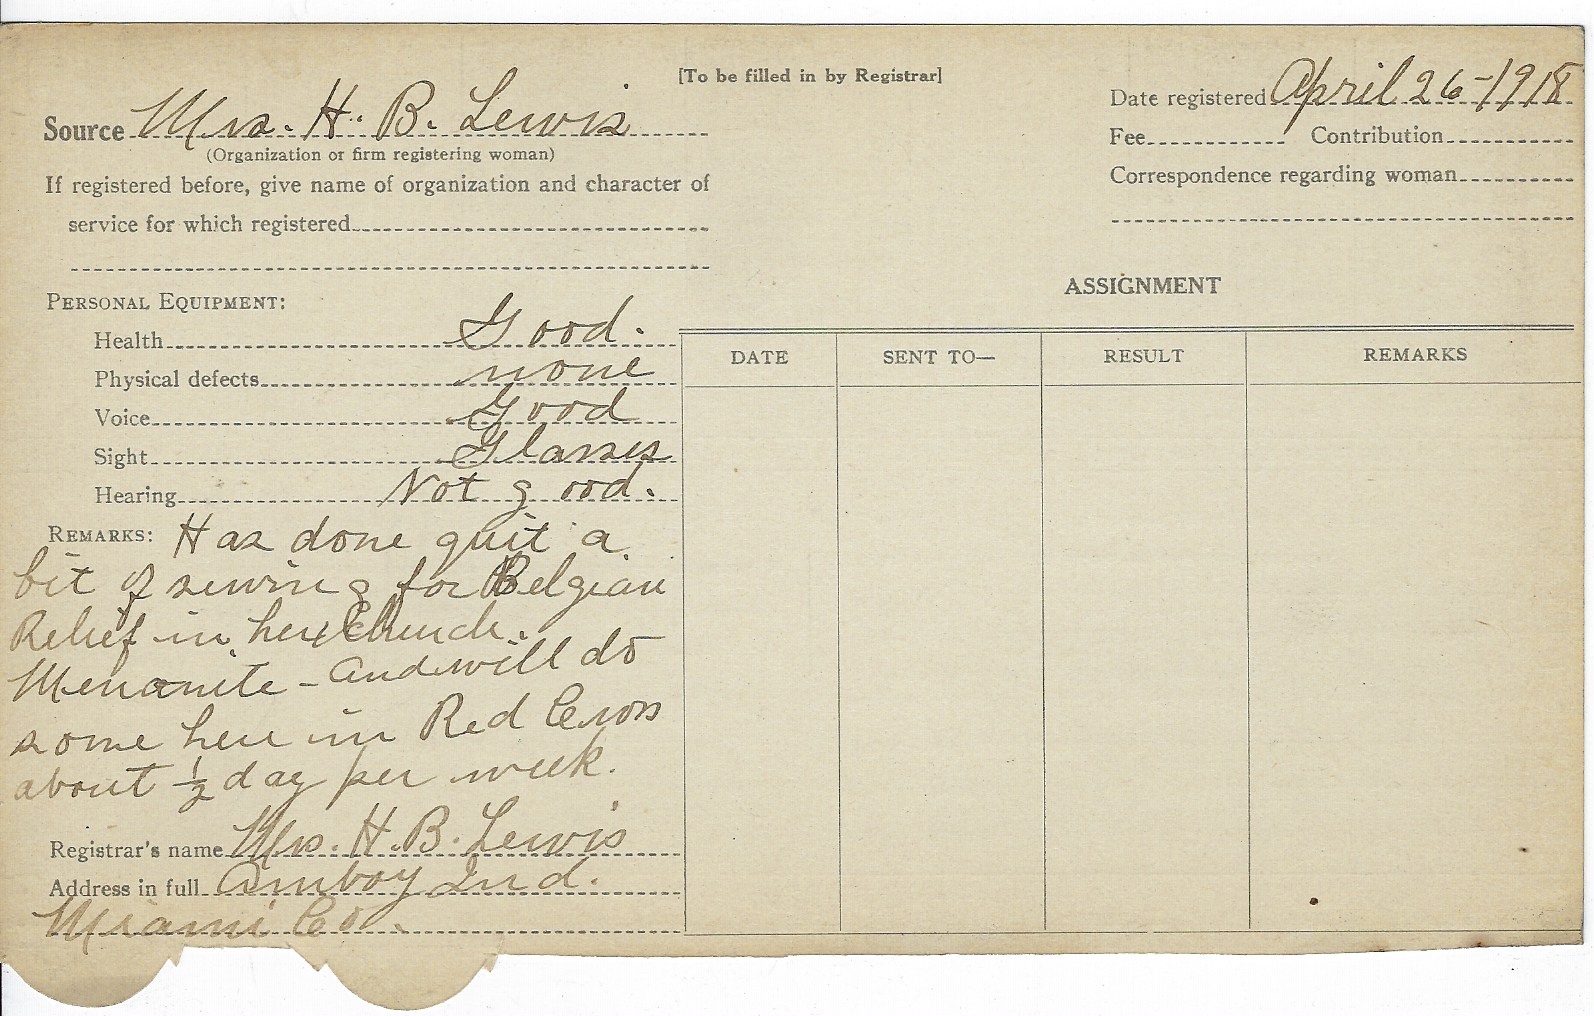 [To be filled in by Registrar]
Source Mrs. H. B. Lewis
(Organization or firm registering woman)
If registered before, give name of organization and character of
service for which registered
Date registered April 26-1918
Fee Contribution
Correspondence regarding woman
PERSONAL EQUIPMENT:
Health Good.
Physical defects none
Voice Good
Sight Glasses
Hearing Not good.
REMARKS: Has done quit a
bit of sewing for Belgian
Relief in her Church.
Menanite - and will do
some here in Red Cross
about 1/2 day per week.
Registrar's name Mrs. H. B. Lewis
Address in full Amboy Ind.
Miami Co.
ASSIGNMENT
DATE SENT TO— RESULT REMARKS